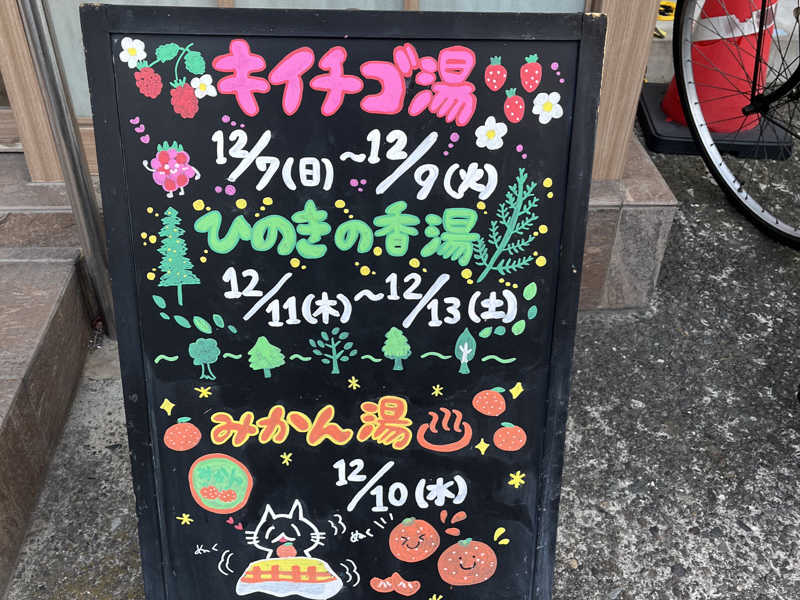 キイチゴ湯
12/7(日)~12/9(火)
ひのきの香湯
12/11(木)~12/13(土)
みかん湯
12/10(水)
みかん
ぬくぬく